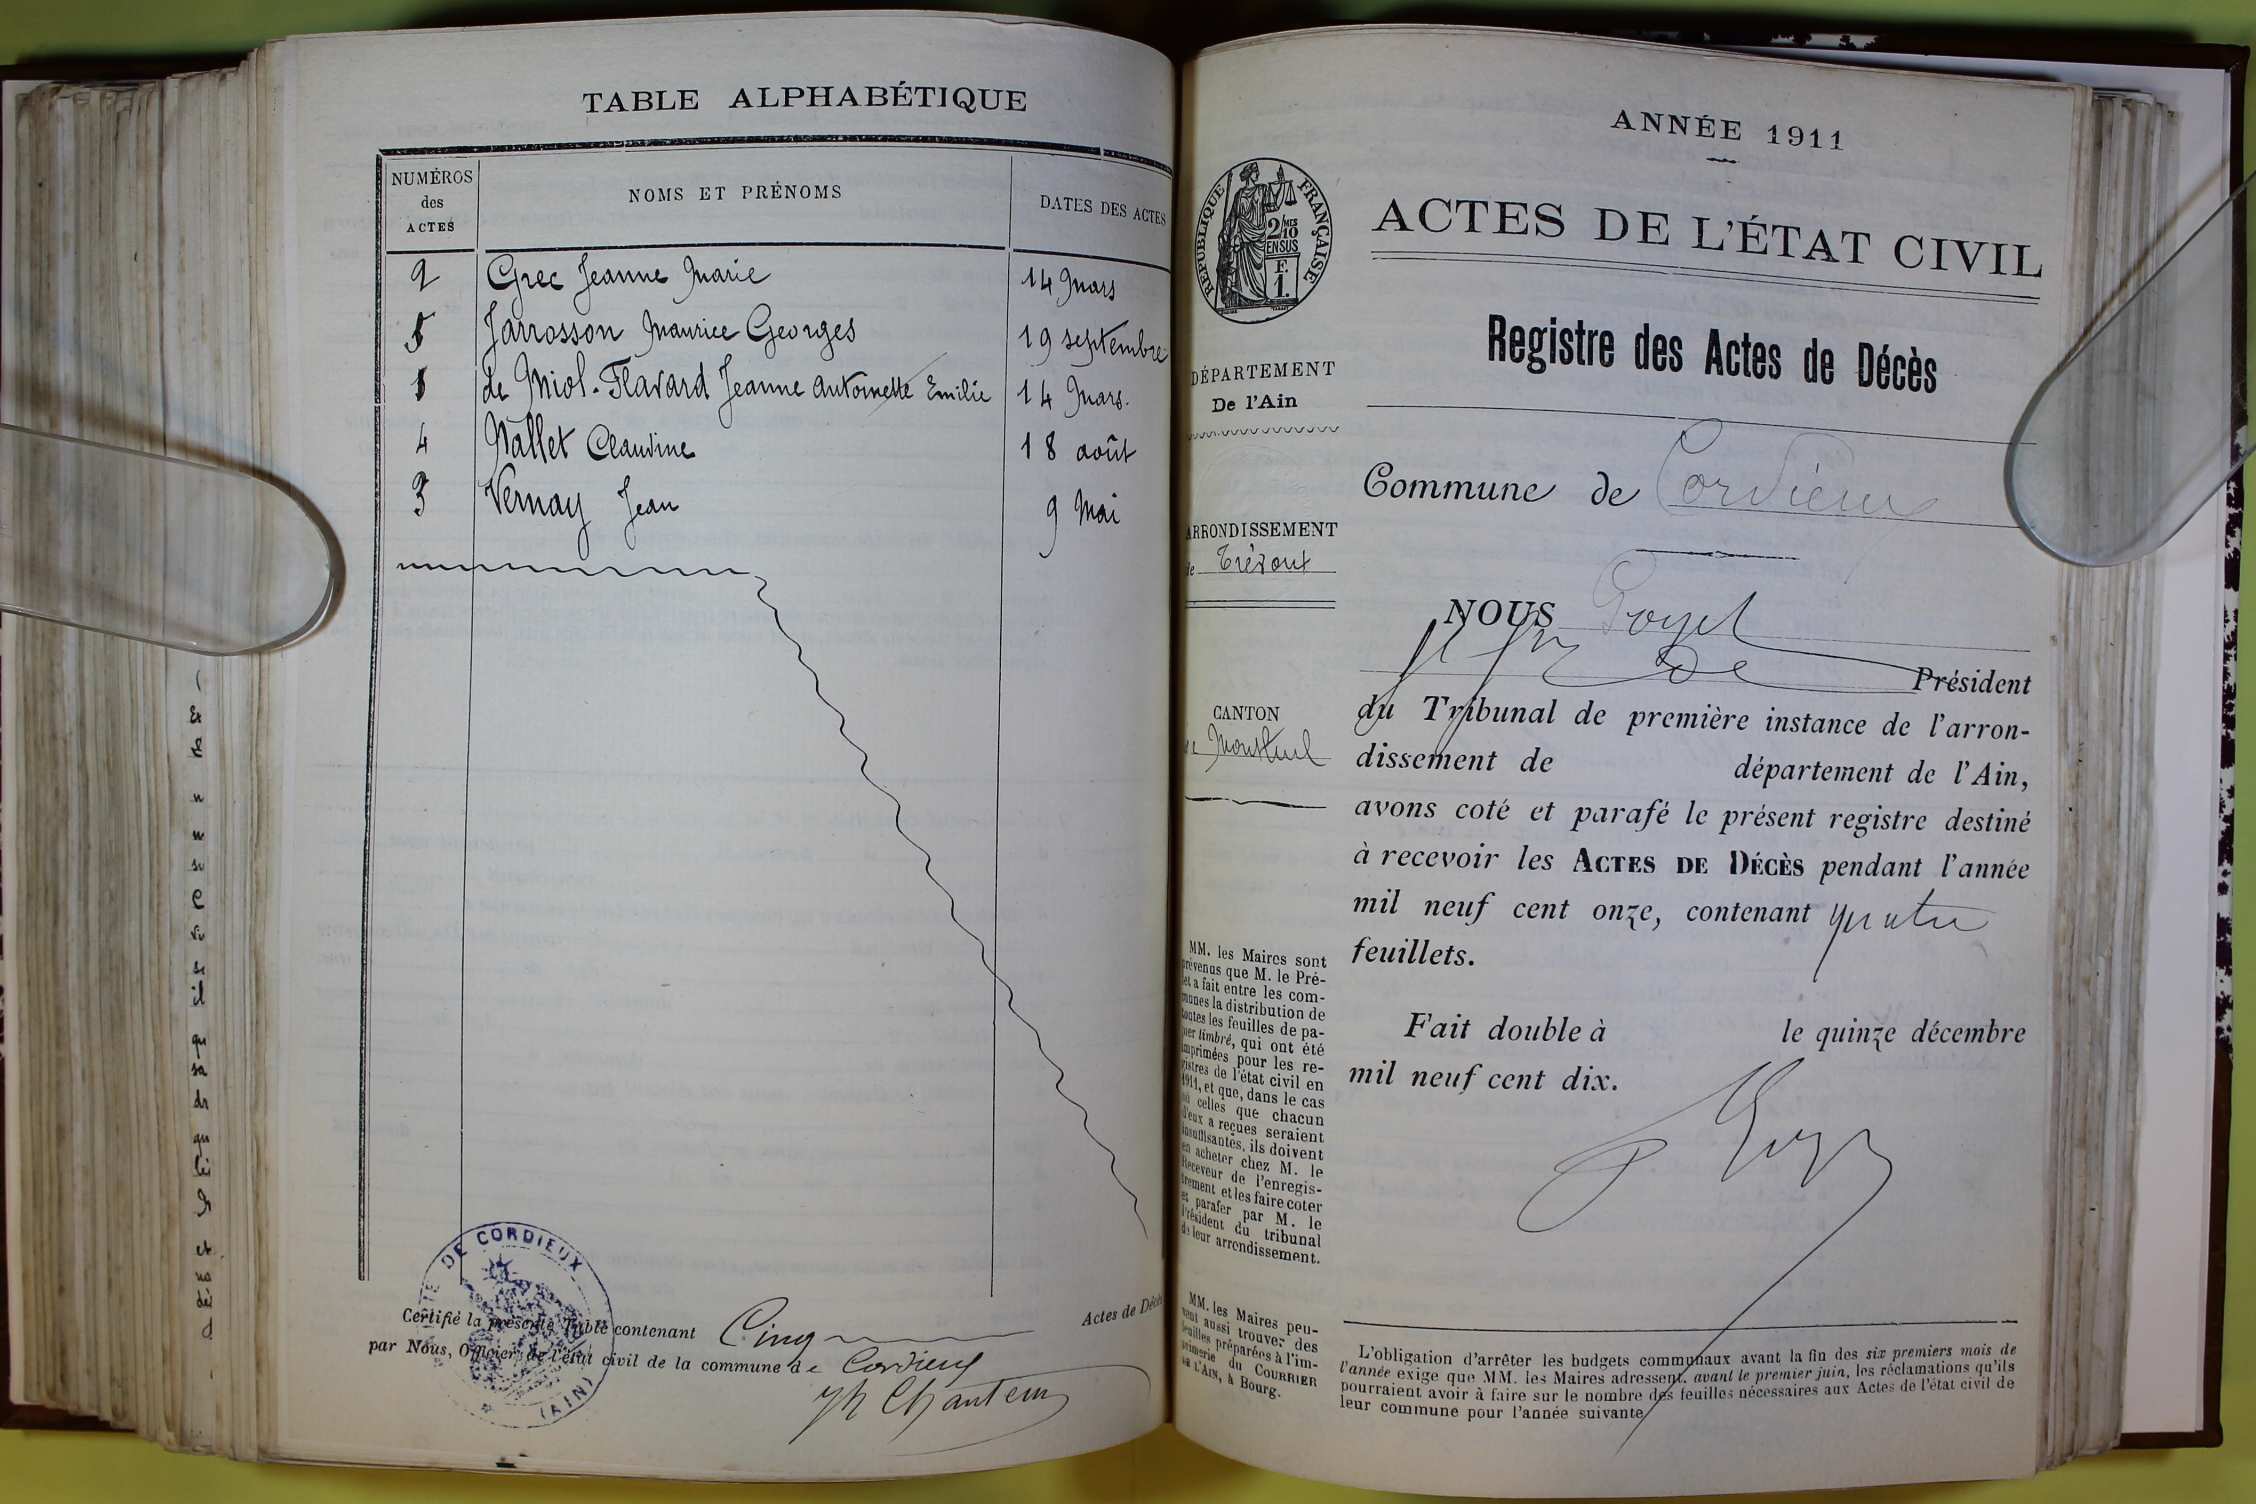 TABLE ALPHABÉTIQUE
NUMÉROS des ACTES
NOMS ET PRÉNOMS
DATES DES ACTES
2 Grec Jeanne Marie 14 Mars
5 Jarrosson Maurice Georges 19 septembre
1 de Miol-Flavard Jeanne Antoinette Emilie 14 Mars.
4 Nallet Claudine 18 août
3 Vernay Jean 9 Mai
DE CORDIEUX
(AIN)
Certifié la présente Table contenant Cinq Actes de Décès
par Nous, Officier de l'état civil de la commune de Cordieux
ANNÉE 1911
RÉPUBLIQUE FRANÇAISE
2/10 MES
EN SUS
F.
1.
ACTES DE L'ÉTAT CIVIL
Registre des Actes de Décès
DÉPARTEMENT
De l'Ain
Commune de Cordieux
ARRONDISSEMENT
de Trévoux
CANTON
de Montluel
NOUS
Président
du Tribunal de première instance de l'arron-
dissement de département de l'Ain,
avons coté et parafé le présent registre destiné
à recevoir les ACTES DE DÉCÈS pendant l'année
mil neuf cent onze, contenant quatre
feuillets.
Fait double à le quinze décembre
mil neuf cent dix.
MM. les Maires sont
prévenus que M. le Pré-
fet a fait entre les com-
munes la distribution de
toutes les feuilles de pa-
pier timbré, qui ont été
imprimées pour les re-
gistres de l'état civil en
1911, et que, dans le cas
où celles que chacun
d'eux a reçues seraient
insuffisantes, ils doivent
en acheter chez M. le
Receveur de l'enregis-
trement et les faire coter
et parafer par M. le
Président du tribunal
de leur arrondissement.
MM. les Maires peu-
vent aussi trouver des
feuilles préparées à l'im-
primerie du COURRIER
DE L'AIN, à Bourg.
L'obligation d'arrêter les budgets communaux avant la fin des six premiers mois de
l'année exige que MM. les Maires adressent, avant le premier juin, les réclamations qu'ils
pourraient avoir à faire sur le nombre des feuilles nécessaires aux Actes de l'état civil de
leur commune pour l'année suivante